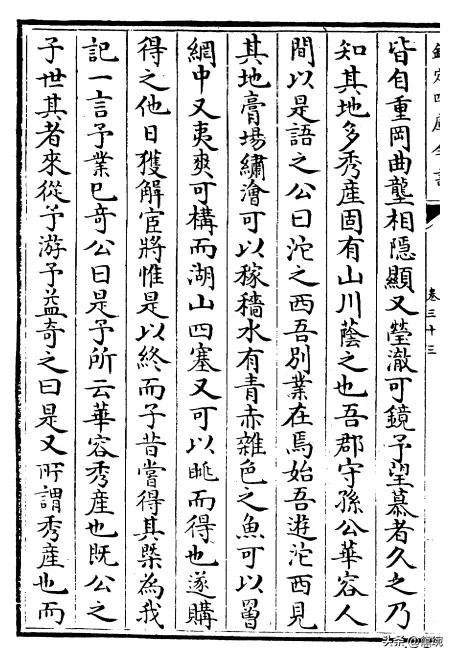 欽定四庫全書
卷三十三
皆自重岡曲壟相隱顯又瑩澈可鏡予望慕者久之乃
知其地多秀產固有山川蔭之也吾郡守孫公華容人
間以是語之公曰沱之西吾別業在焉始吾遊沱西見
其地膏場繡澮可以稼穡水有青赤雜色之魚可以罶
網中又夷爽可構而湖山四塞又可以眺而得也遂購
得之他日獲解宦將惟是以終而子昔嘗得其槩為我
記一言予業已奇公曰是予所云華容秀產也既公之
子世其者來從予游予益奇之曰是又所謂秀產也而
头条@